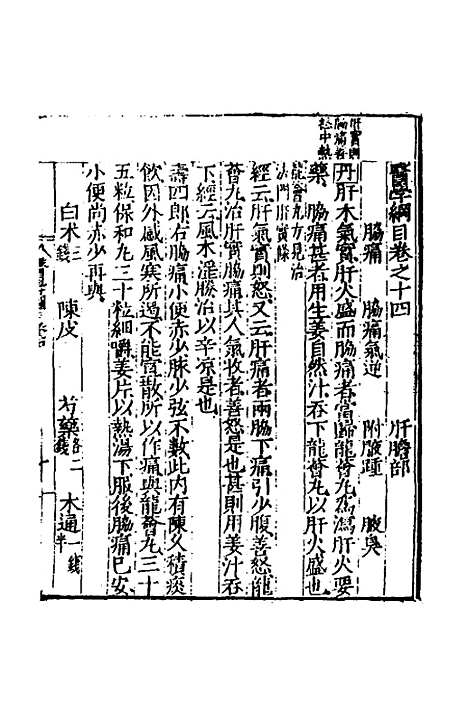 醫學綱目卷之十四　肝膽部
脇痛　脇痛氣逆　附腋腫　腋臭
肝實則
脇痛者
丹肝木氣實肝火盛而脇痛者當歸龍薈丸為瀉肝火要
藥　脇痛甚者用生姜自然汁吞下龍薈丸以肝火盛也
龍薈丸方見治
法門肝實條
經云肝氣實則怒又云肝痛者兩脇下痛引少腹善怒龍
薈丸治肝實脇痛其人氣收者善怒是也甚則用姜汁吞
下經云風木淫勝治以辛凉是也
壽四郎右脇痛小便赤少脉少弦不數此内有陳久積痰
飲因外感風寒所遏不能宣散所以作痛與龍薈丸三十
五粒保和丸三十粒細嚼姜片以熱湯下服後脇痛已安
小便尚赤少再與
白术三錢　陳皮　芍藥各二錢　木通一錢半